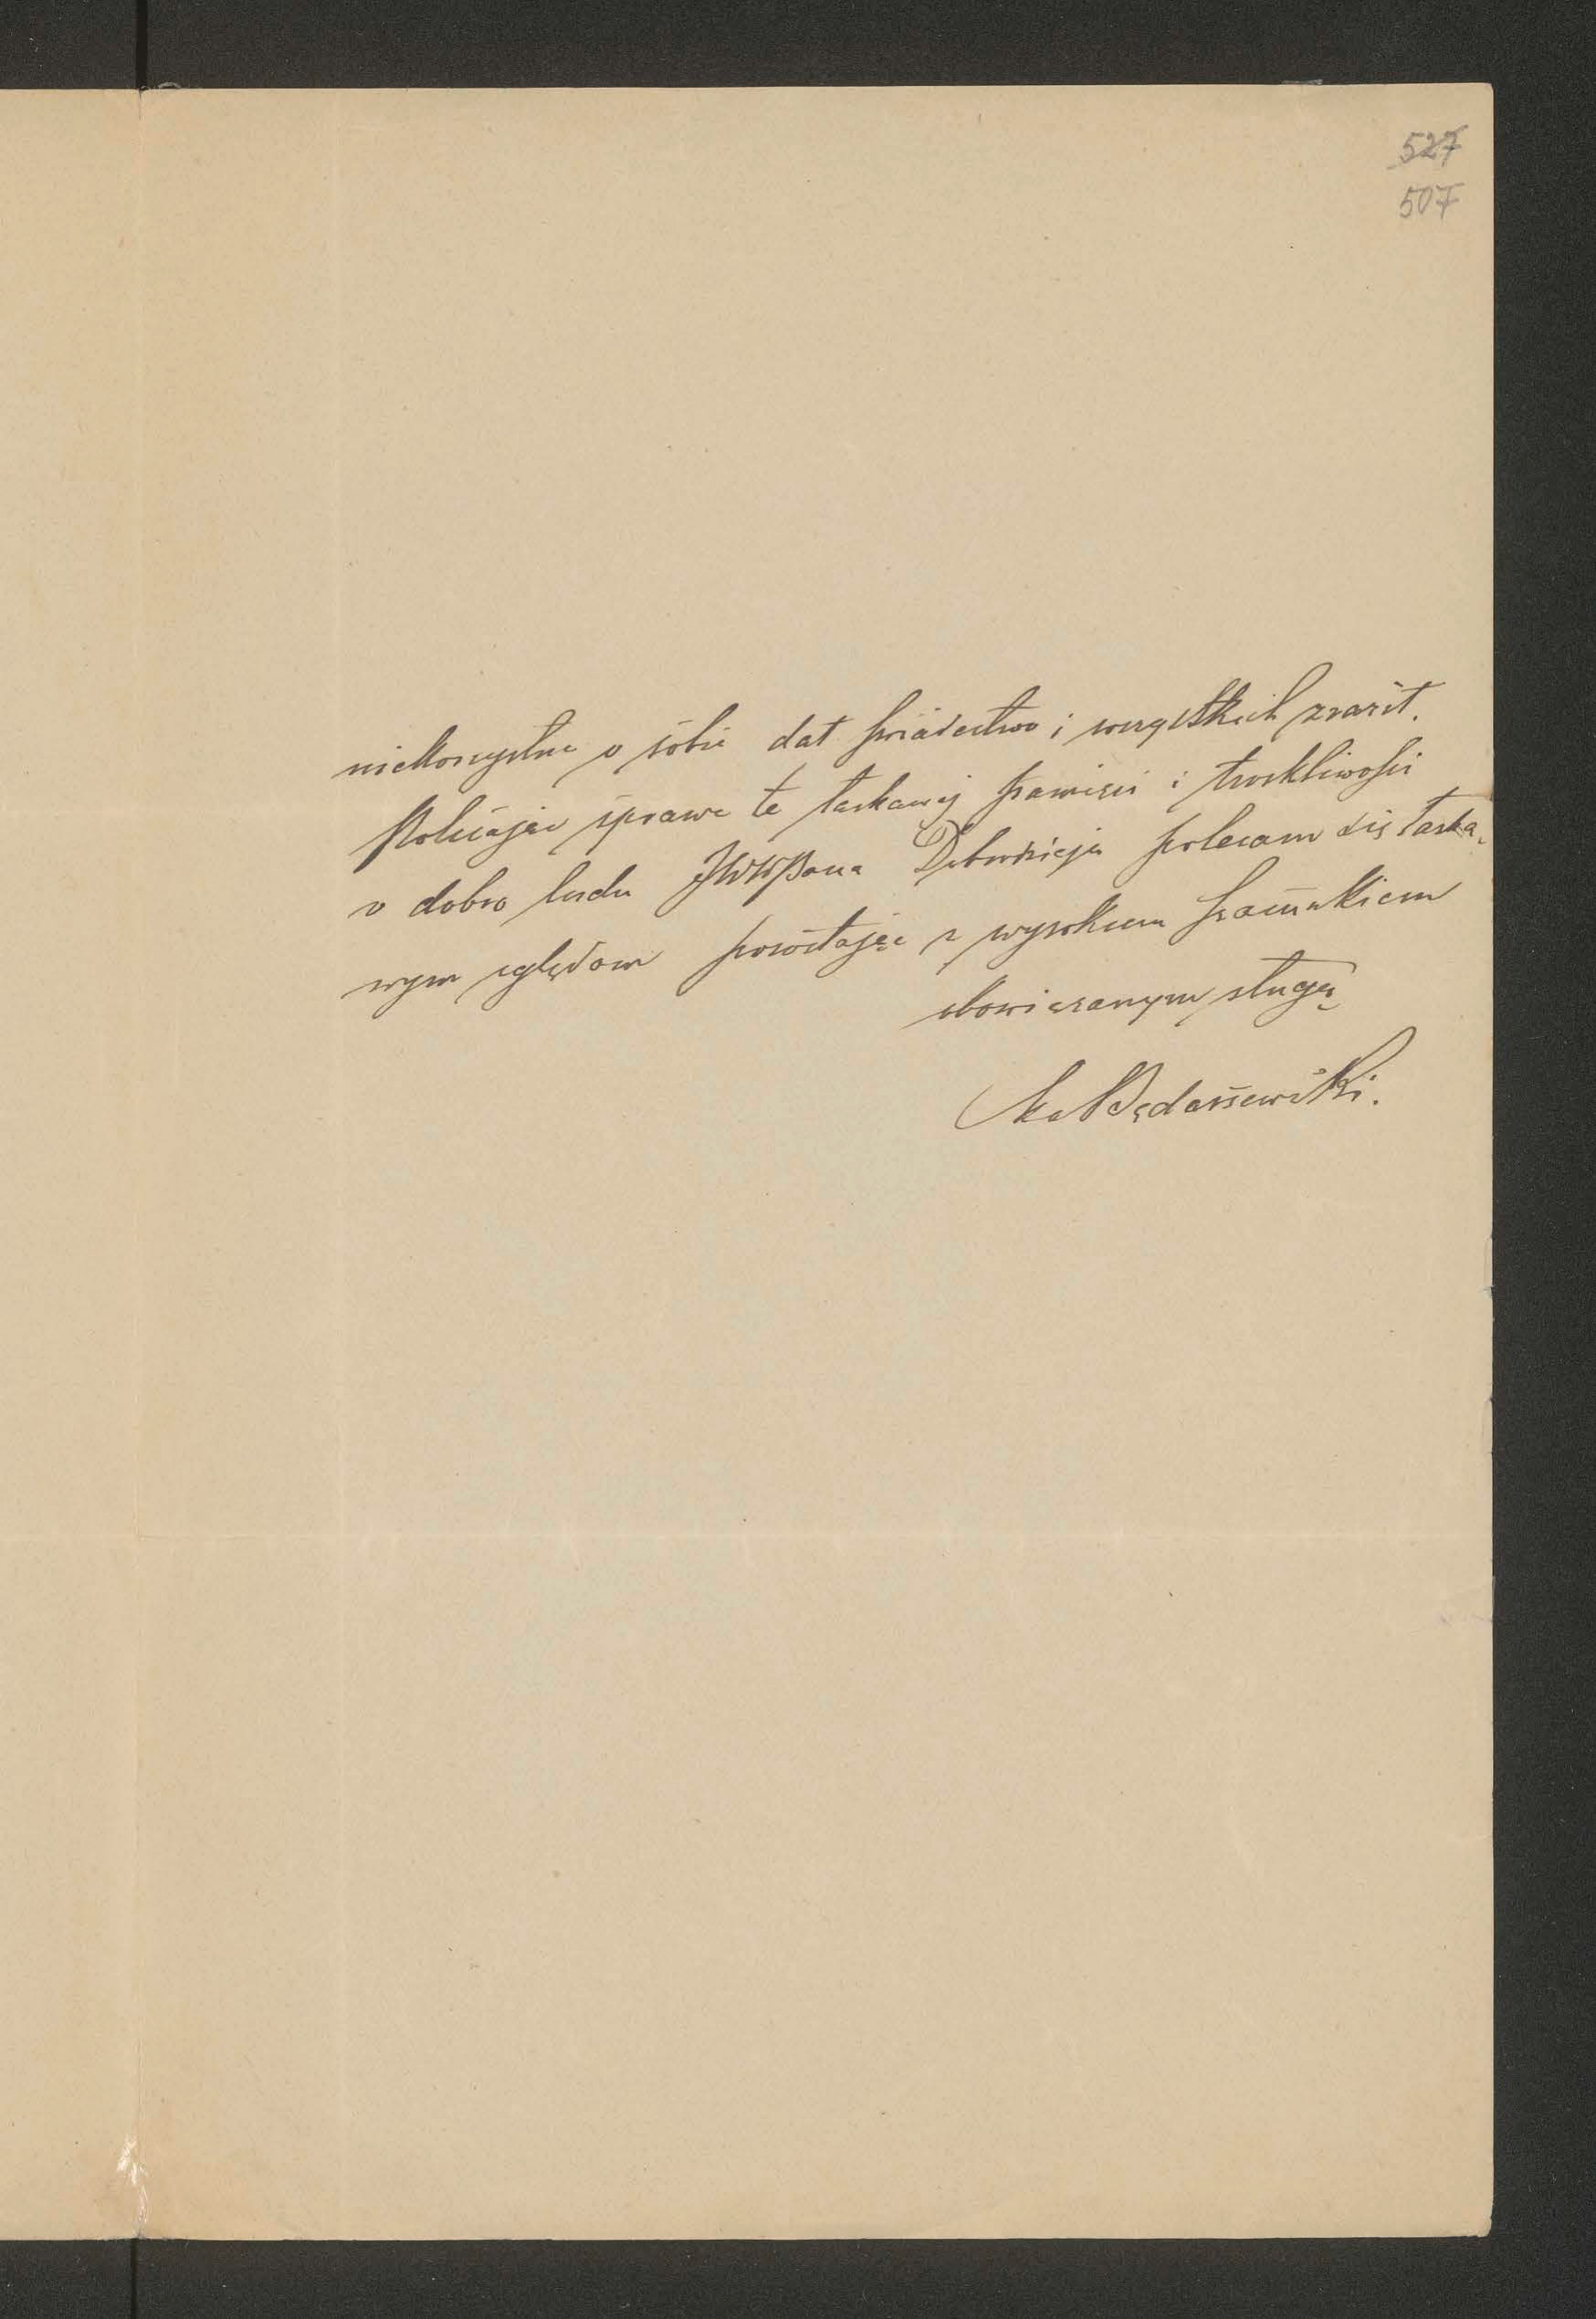 527
507
niekorzystne o sobie dał świadectwo i wszystkich zraził.
Polecając sprawę tę łaskawej pamięci i troskliwości
o dobro ludu JWWPana Dobrodzieja polecam się łaska-
wym względom pozostając z wysokim szacunkiem
obowiązanym sługą